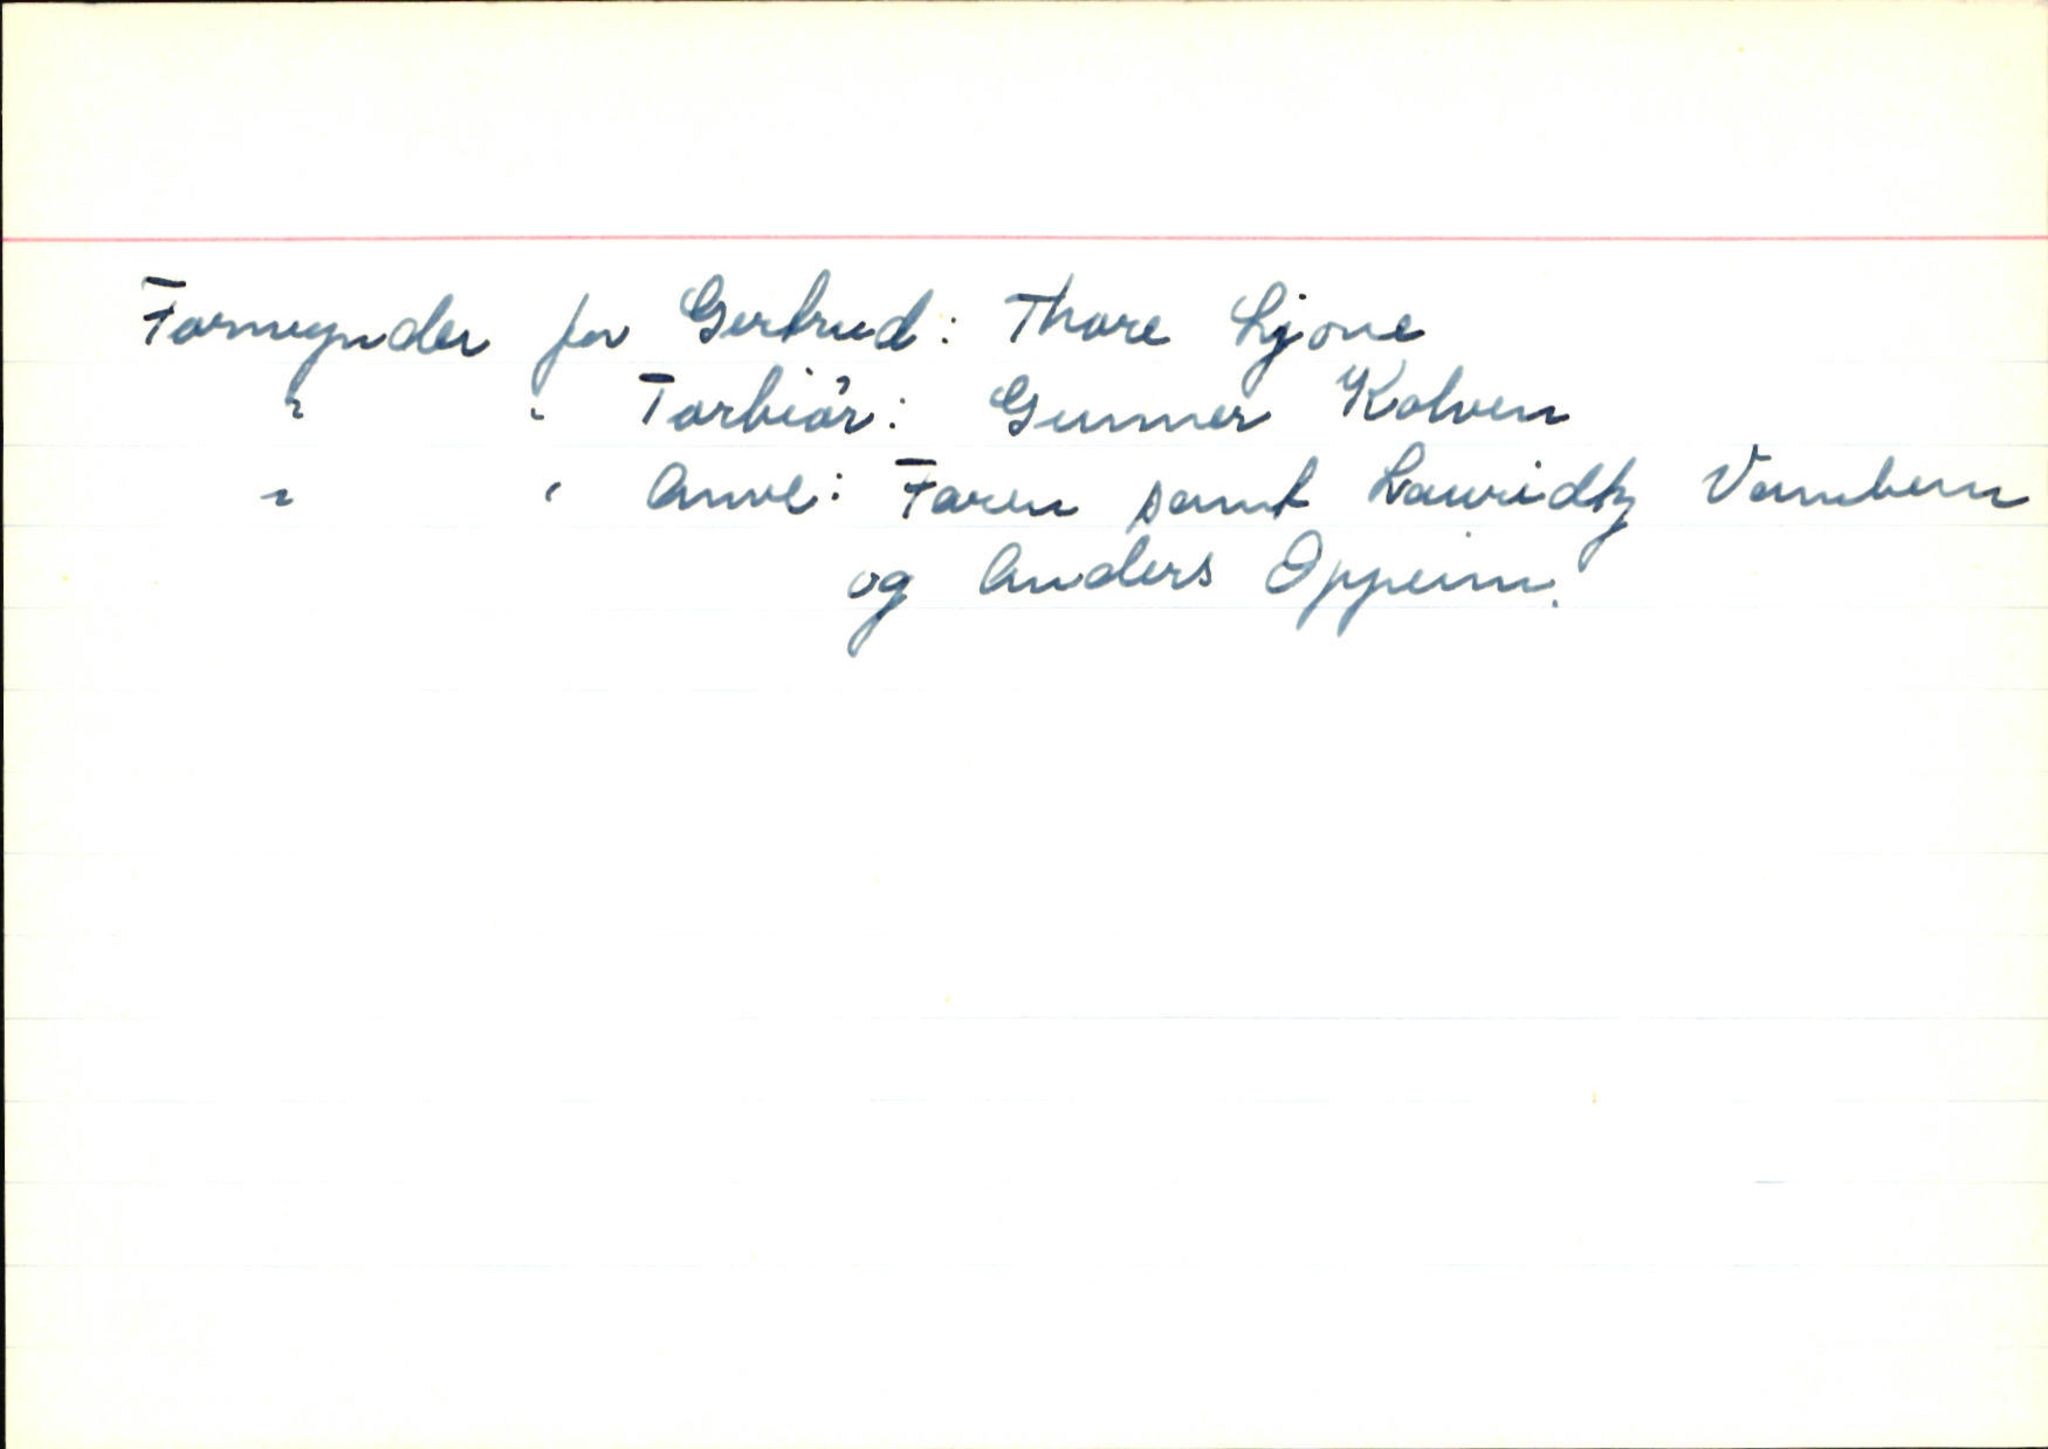 Formynder for Gertrud: Thore Ljone
" " Torbiór: Gunner Kolven
" " Anve: Faren samt Lauridtz Vambem
og Anders Oppeim.